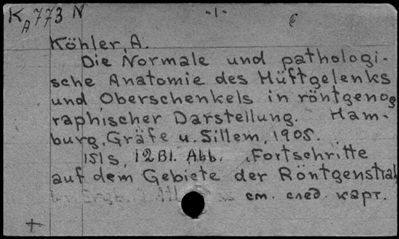 K A 773 N -1-
Köhler, A.
Die Normale und pathologi-
sche Anatomie des Hüftgelenks
und Oberschenkels in röntgenog
raphischer Darstellung. Ham-
burg, Gräfe u. Sillem, 1905.
151s, 12 Bl. Abb. Fortschritte
auf dem Gebiete der Röntgenstrah
см. след. карт.
+